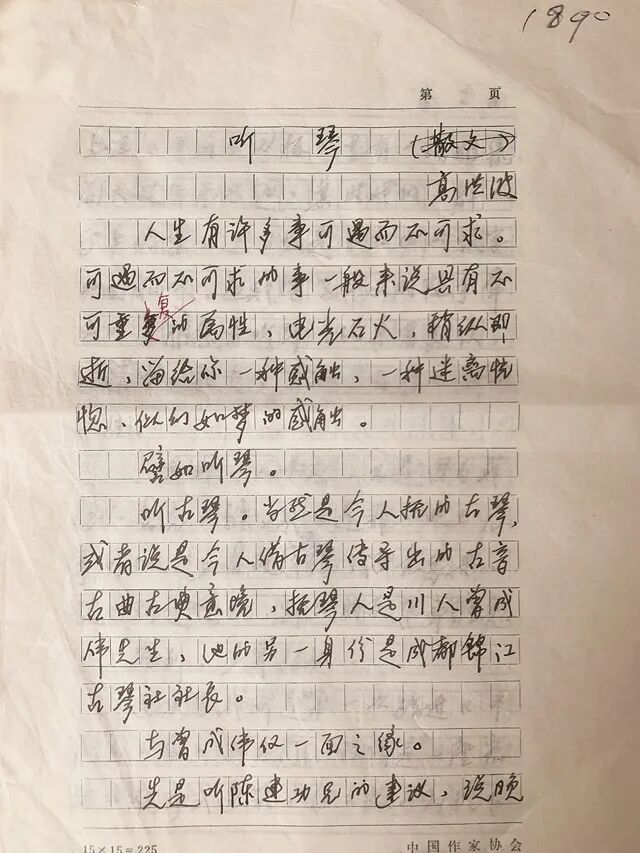 1890
第 页
听琴 (散文)
高洪波
人生有许多事可遇而不可求。
可遇而不可求的事一般来说具有不
可重复的属性，电光石火，稍纵即
逝，留给你一种感触，一种迷离恍
惚、似幻如梦的感触。
譬如听琴。
听古琴。当然是今人抚的古琴，
或者说是今人借古琴传导出的古音
古曲古典意境，抚琴人是川人曾成
伟先生，他的另一身份是成都锦江
古琴社社长。
与曾成伟仅一面之缘。
先是听陈建功兄的建议，说晚
15×15=225
中国作家协会